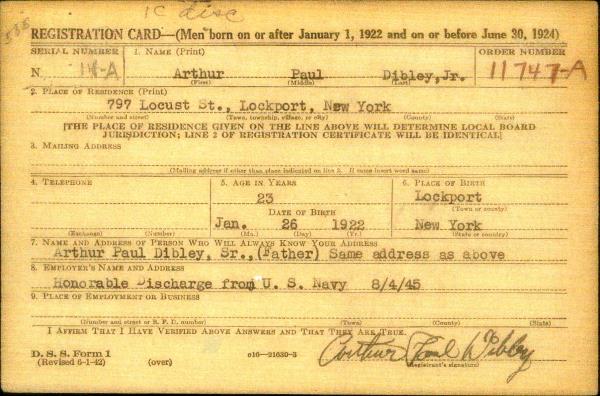 1C disc
588
REGISTRATION CARD—(Men born on or after January 1, 1922 and on or before June 30, 1924)
SERIAL NUMBER 1. NAME (Print) ORDER NUMBER
N. 14-A Arthur Paul Dibley, Jr. 11747-A
(First) (Middle) (Last)
2. PLACE OF RESIDENCE (Print)
797 Locust St., Lockport, New York
(Number and street) (Town, township, village, or city) (County) (State)
[THE PLACE OF RESIDENCE GIVEN ON THE LINE ABOVE WILL DETERMINE LOCAL BOARD
JURISDICTION; LINE 2 OF REGISTRATION CERTIFICATE WILL BE IDENTICAL]
3. MAILING ADDRESS
(Mailing address if other than place indicated on line 2. If same insert word same)
4. TELEPHONE 5. AGE IN YEARS 6. PLACE OF BIRTH
23 Lockport
DATE OF BIRTH (Town or county)
Jan. 26 1922 New York
(Exchange) (Number) (Mo.) (Day) (Yr.) (State or country)
7. NAME AND ADDRESS OF PERSON WHO WILL ALWAYS KNOW YOUR ADDRESS
Arthur Paul Dibley, Sr., (Father) Same address as above
8. EMPLOYER'S NAME AND ADDRESS
Honorable Discharge from U. S. Navy 8/4/45
9. PLACE OF EMPLOYMENT OR BUSINESS
(Number and street or R. F. D. number) (Town) (County) (State)
I AFFIRM THAT I HAVE VERIFIED ABOVE ANSWERS AND THAT THEY ARE TRUE.
D. S. S. Form 1
(Revised 6-1-42) (over) c16—21630-3 Arthur Paul Dibley
(Registrant's signature)